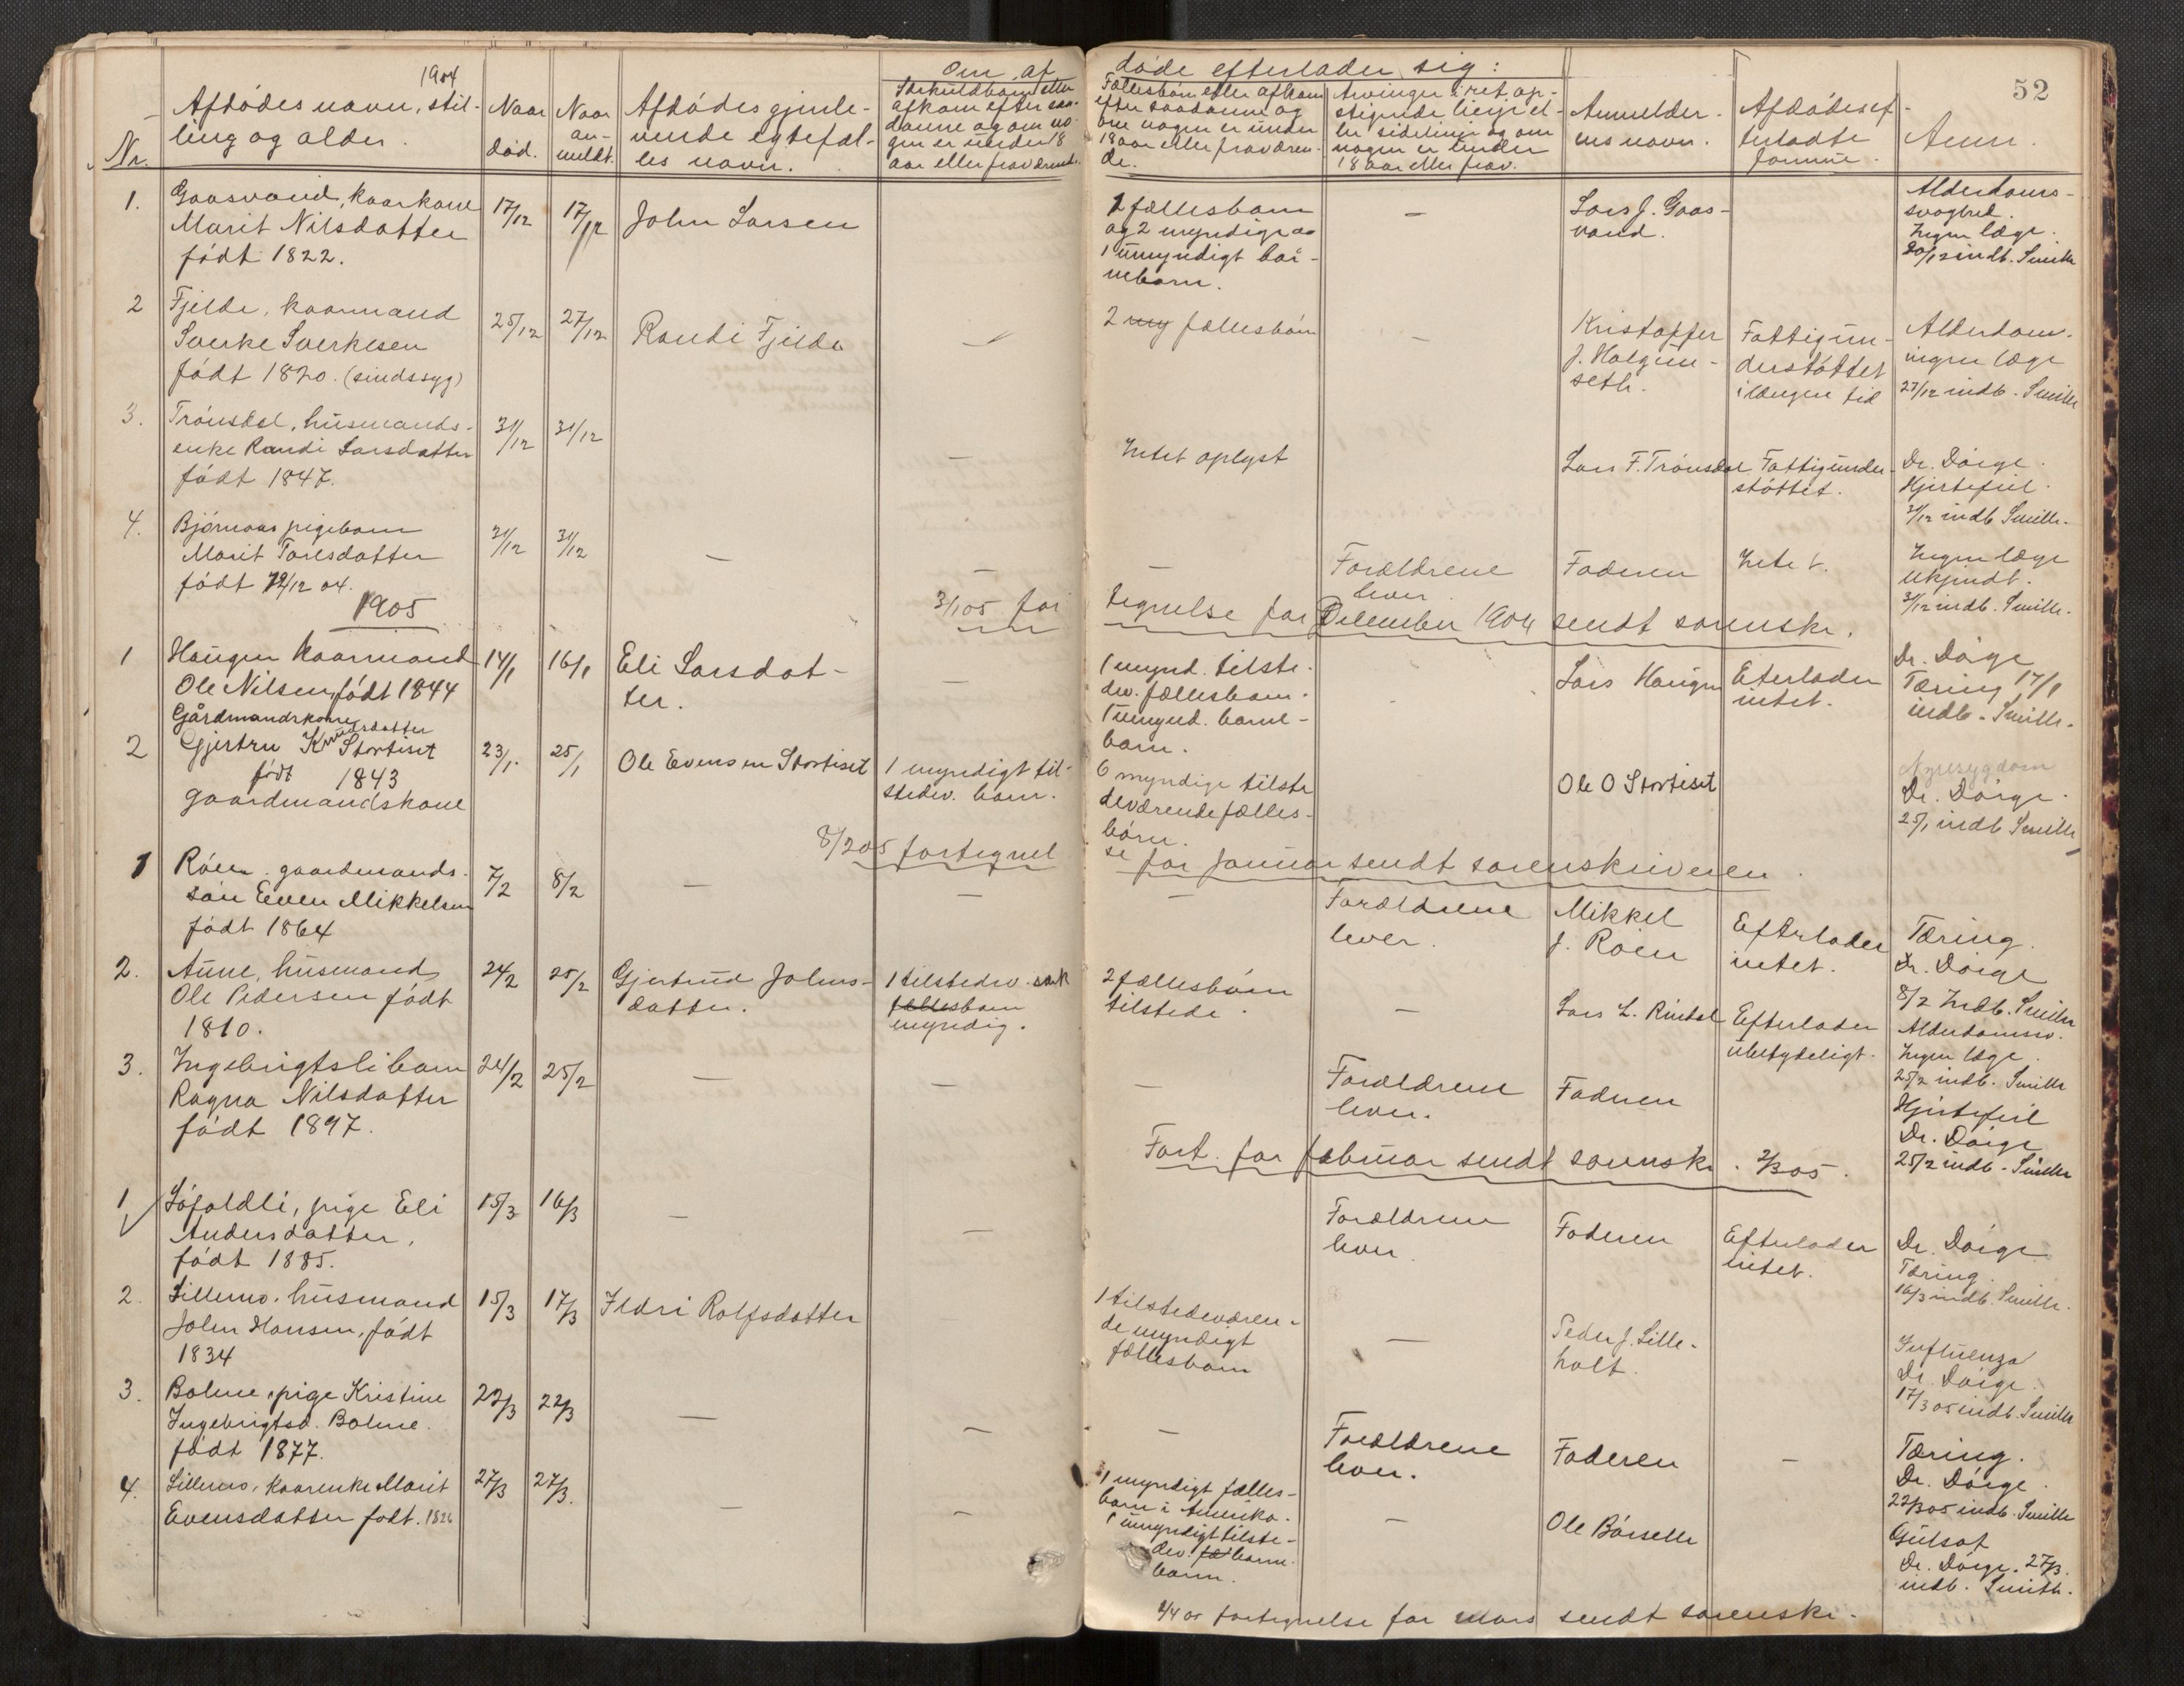 1904
52
Om af
døde efterlader sig:
Nr.
Afdødes navn, stil-
ling og alder.
Naar
død.
Naar
an-
meldt.
Afdødes gjenle-
vende egtefæl-
les navn.
Særkuldbørn eller
afkom efter saa-
danne og om no-
gen er under 18
aar eller fraværende.
Fællesbørn eller afkom
efter saadanne og
om nogen er under
18 aar eller fraværen-
de.
Arvinger i ret op-
stigende linje el-
ler sidelinje og om
nogen er under
18 aar eller frav.
Anmelder-
ens navn.
Afdødes ef-
terladte
formue.
Anm.
1.
Gaasvand, kaarkone
Marit Nilsdatter
født 1822.
17/12
17/12
John Larsen
1 fællesbarn
og 2 myndige og
1 umyndigt bar-
nebarn.
—
Lars J. Gaas-
vand.
Alderdoms-
svaghed.
Ingen læge.
20/12 indb. Smith
2
Fjelde, kaarmand
Sverke Sverkesen
født 1820. (sindssyg)
25/12
27/12
Randi Fjelde
—
2 my fællesbørn
—
Kristoffer
J. Halgun-
seth.
Fattigun-
derstøttet
i længere tid
Alderdom.
ingen læge
27/12 indb. Smith
3.
Trønsdal, husmands-
enke Randi Larsdatter
født 1847.
31/12
31/12
—
Intet oplyst
Lars F. Trønsdal
Fattigunder-
støttet.
Dr. Døige.
Hjertefeil.
31/12 indb Smith.
4.
Bjørnaas pigebarn
Marit Toresdatter
født 12/12 04.
31/12
31/12
—
—
—
Forældrene
lever
Faderen
Intet.
Ingen læge
ukjendt.
31/12 indb. Smith.
1905
3/1 05 for
tegnelse for December 1904 sendt sorenskr.
1
Haugen kaarmand
Ole Nilsen, født 1844
14/1
16/1
Eli Larsdat-
ter.
—
1 mynd. tilste-
dev. fællesbarn.
1 umynd. barne-
barn.
Lars Haugen
Efterlader
intet.
Dr. Døige
Tæring 17/1
indb. Smith.
2
Gårdmandskone
Gjertru Knudsdatter
Stortiset
født 1843
gaardmandskone
23/1.
25/1
Ole Evensen Stortiset
1 myndigt til-
stedev. barn.
6 myndige tilste
deværende fælles-
børn.
Ole O Stortiset
Nyresygdom
Dr. Døige.
25/1 indb Smith
8/2 05 fortegnel
se for Januar sendt sorenskriveren.
1
Røen gaardmands-
søn Even Mikkelsen
født 1864
7/2
8/2
—
—
—
Forældrene
lever.
Mikkel
J. Røen
Efterlader
intet.
Tæring.
Dr. Døige
8/2 Indb. Smith
2.
Aune, husmand
Ole Pedersen født
1810.
24/2
25/2
Gjertrud Johns-
datter.
1 tilstedev. særk
fællesbarn
myndig.
2 fællesbørn
tilstede.
—
Lars L. Rindal
Efterlader
ubetydeligt.
Alderdomssv.
Ingen læge.
25/2 indb. Smith
3.
Ingebrigtsli barn
Ragna Nilsdatter
født 1897.
24/2
25/2
—
—
—
Forældrene
lever.
Faderen
Hjertefeil
Dr. Døige
25/2 indb. Smith
Fort. for februar sendt sorenskr. 2/3 05.
1
Løfaldli, pige Eli
Andersdatter,
født 1885.
15/3
16/3
—
—
Forældrene
lever.
Faderen
Efterlader
intet.
Dr. Døige
Tæring.
16/3 indb. Smith.
2.
Lillemo. husmand
John Hansen, født
1834
15/3
17/3
Ildri Rolfsdatter
1 tilstedeværen-
de myndigt
fællesbarn
—
Peder J. Lille-
holt.
Influenza
Dr. Døige.
17/3 05 indb. Smith
3.
Bolme, pige Kristine
Ingebrigtsd. Bolme.
født 1877.
22/3
22/3
—
—
—
Forældrene
lever.
Faderen
—
Tæring.
Dr. Døige.
22/3 05 indb. Smith
4.
Lillemo, kaarenke Marit
Evensdatter født. 1826
27/3
27/3.
—
—
1 myndigt fælles-
barn i Amerika.
1 umyndigt tilste-
dev. fæ barne-
barn.
—
Ole Børseth
Gulsot
Dr. Døige. 27/3.
indb. Smith.
1/4 05 fortegnelse for mars sendt sorenskr.